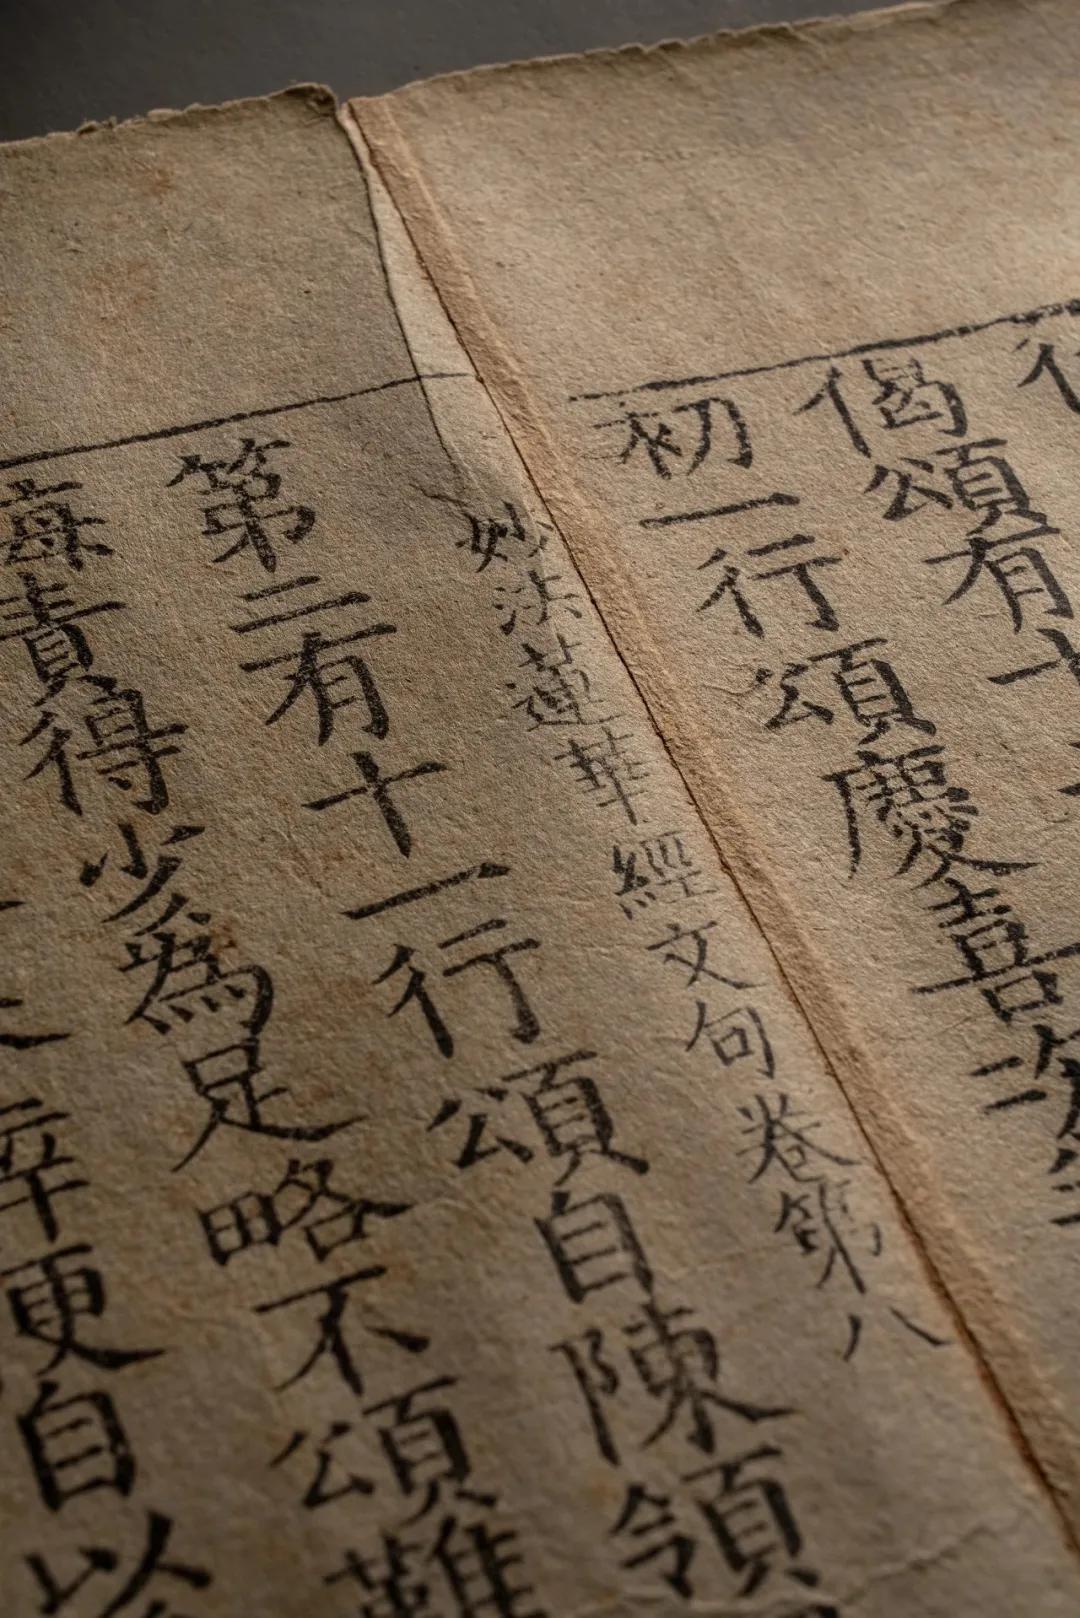 偈頌有十
初一行頌慶喜次
妙法蓮華經文句卷第八
第二有十一行頌自陳領
得少為足略不頌難
每責
辛更自以